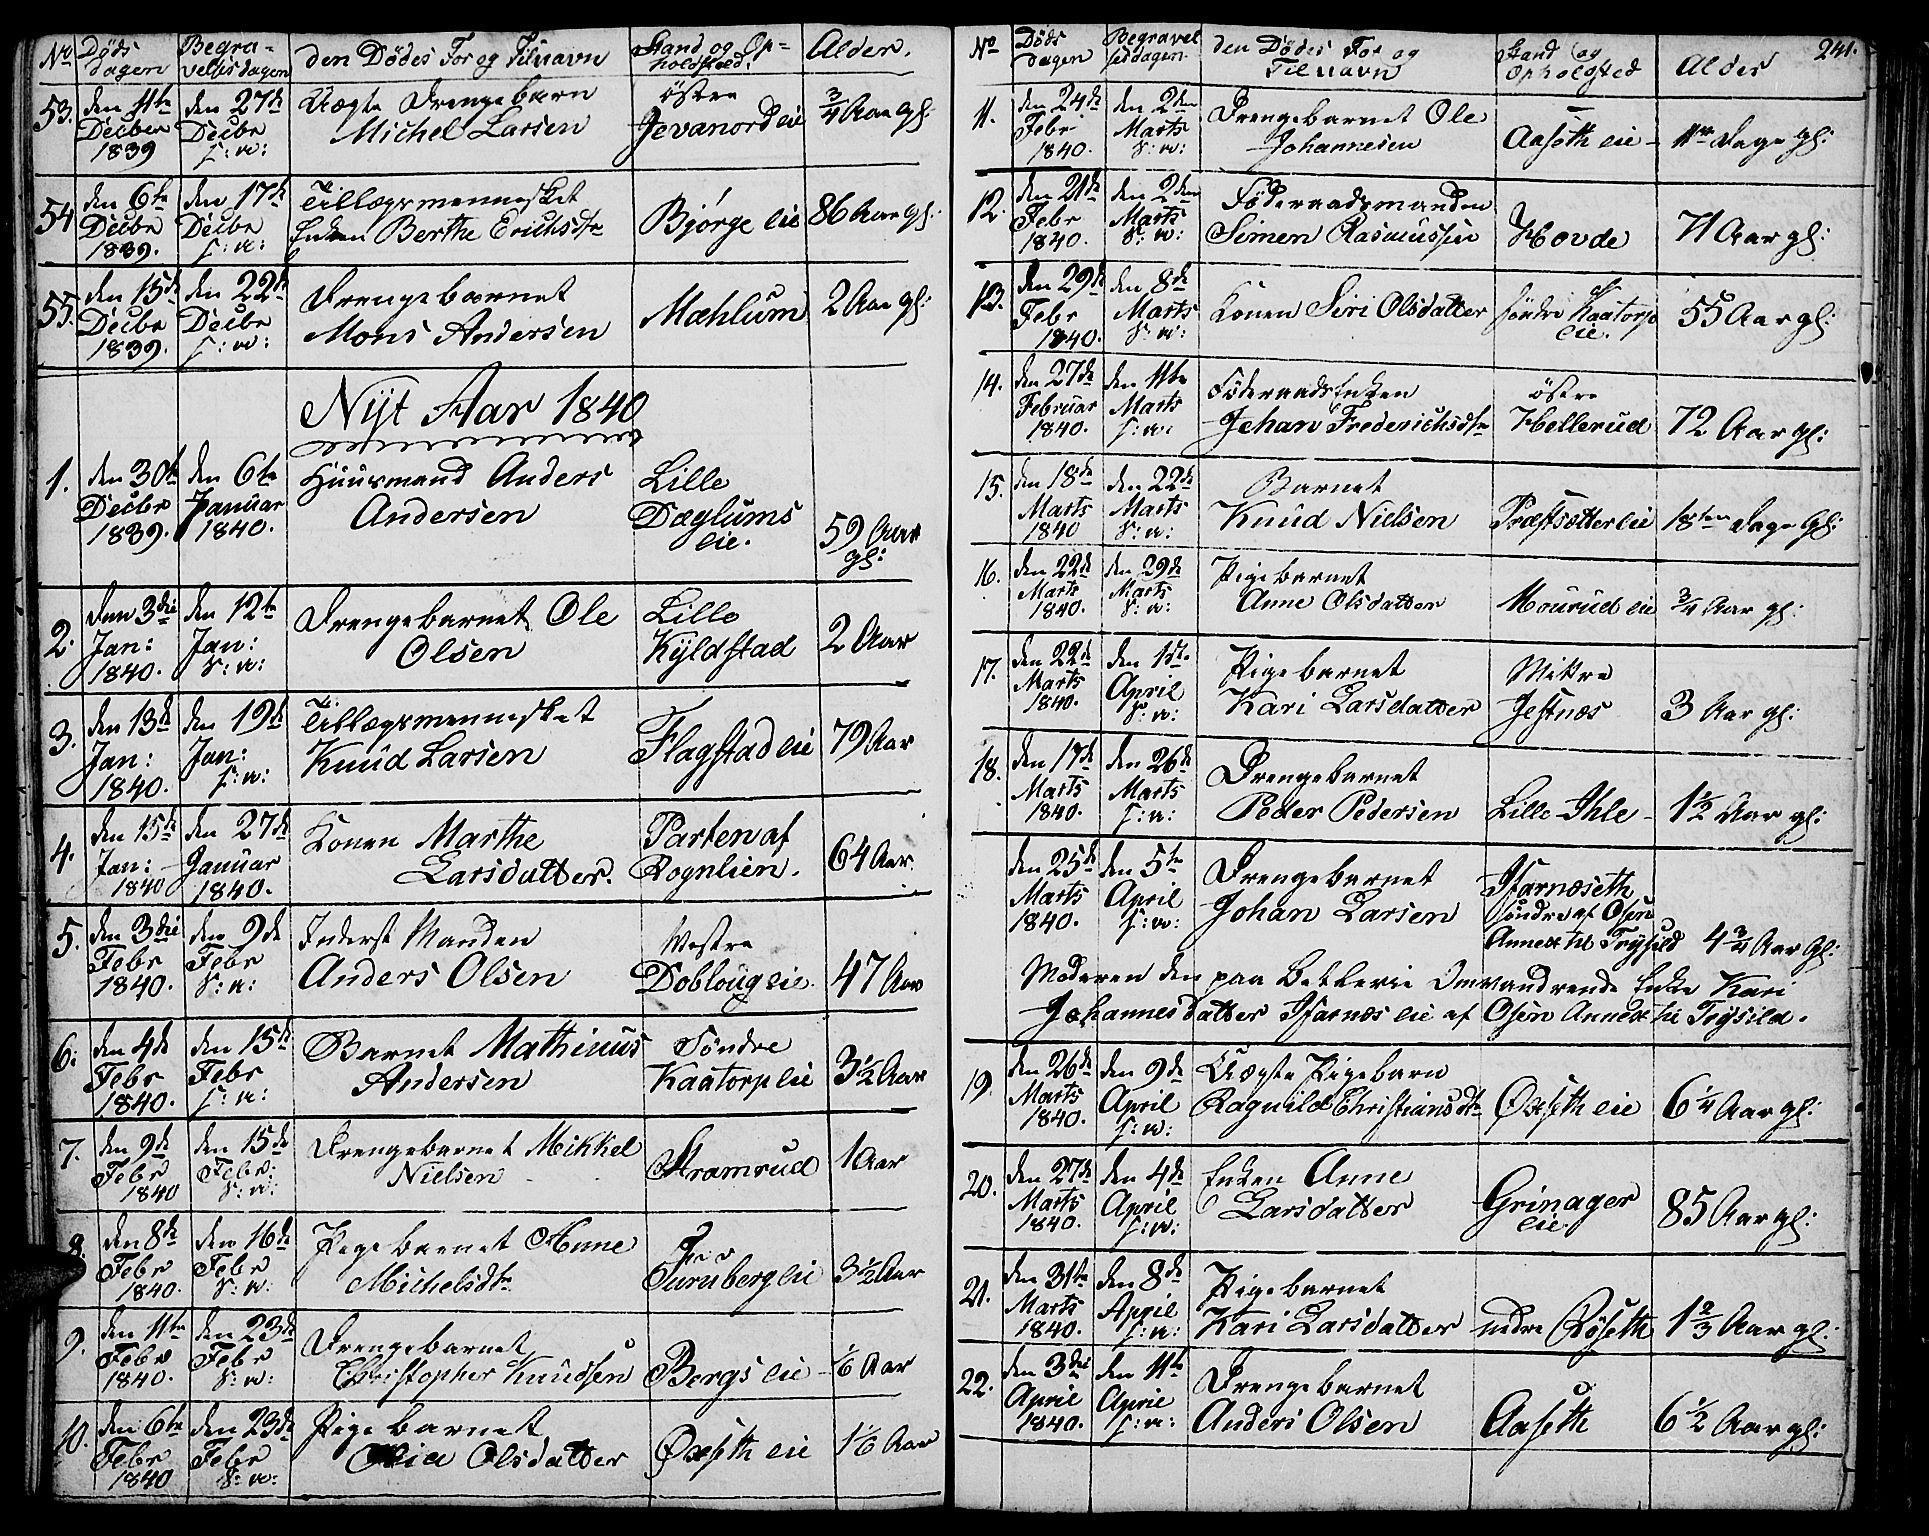 No Døds dagen Begravelsesdagen den Dødes For og Tilnavn Stand og Opholdsted. Alder.
53. den 11te Decbr 1839 den 27de Decbr s: a: Uægte Drengebarn Michel Larsen østre Jevanord eie 3/4 Aar gl:
54 den 6te Decbr 1839. den 17de Decbr s: a: Tillægsmennesket Enken Berthe Erichsdtr Bjørge eie 86 Aar gl:
55. den 15de Decbr 1839. den 22de Decbr s: a: Drengebarnet Mons Andersen Mæhlum 2 Aar gl:
Nyt Aar 1840
1. den 30te Decbr 1839. den 6te Januar 1840. Huusmand Anders Andersen Lille Dæglums eie. 59 Aar gl:
2. den 3die Jan: 1840. den 12te Jan: s: a: Drengebarnet Ole Olsen Lille Kyldstad 2 Aar
3. den 13de Jan: 1840. den 19de Jan: s: a: Tillægsmennesket Knud Larsen Flagstad eie 79 Aar
4. den 15de Jan: 1840 den 27de Januar 1840. Konen Marthe Larsdatter. Parten af Rognlien. 64 Aar
5. den 3die Febr 1840. den 9de Febr s: a: Inderst Manden Anders Olsen Vestre Doblougeie. 47 Aar
6. den 4de Febr 1840. den 15de Febr s: a: Barnet Mathinus Andersen Søndre Kaatorp eie 3 1/2 Aar
7. den 9de Febr 1840 den 15de Febr: s: a: Drengebarnet Mikkel Nielsen Stramrud 1 Aar
8. den 8de Febr 1840. den 16de Febr s: a: Pigebarnet Anne Michelsdtr Furuberg eie 3 1/2 Aar
9. den 11te Febr 1840. den 23de Febr s: a: Drengebarnet Christopher Knudsen Bergs eie 1/6 Aar
10. den 6te Febr 1840 den 23de Febr s: a: Pigebarnet Olia Olsdatter Øxseth eie 1 1/6 Aar
No Døds dagen Begravelsesdagen. den Dødes For og Tilnavn Stand og Opholdsted Alder 241.
11. den 24de Febr 1840. den 2den Marts s: a: Drengebarnet Ole Johannesen Aaseth eie 11ve Dage gl:
12. den 21de Febr 1840. den 2den Marts s: a: Føderaadsmanden Simen Rasmussen Hovde 71 Aar gl:
13. den 29de Febr 1840. den 8de Marts s: a: Konen Siri Olsdatter søndre Kaatorp eie. 55 Aar gl:
14. den 27de Februar 1840. den 11te Marts s: a: FøderaadsEnken Johan Frederichsdtr østre Hellerud 72 Aar gl:
15. den 18de Marts 1840 den 22de Marts s: a: Barnet Knud Nielsen Præstsætter eie 18ten Dage gl:
16. den 22de Marts 1840. den 29de Marts s: a: Pigebarnet Anne Olsdatter Mourud eie 3/4 Aar gl:
17. den 22de Marts 1840. den 1ste April s: a: Pigebarnet Kari Larsdatter Mittre Jestnæs 3 Aar gl:
18. den 17de Marts 1840. den 26de Marts s: a: Drengebarnet Peder Pedersen Lille Ihle 1 1/2 Aar gl:
den 25de Marts 1840. den 5te April s: a: Drengebarnet Johan Larsen søndre af Osen Annex til Trysild 4 3/4 Aar gl:
Moderen den paa Betlerie Omvandrende Enke Kari
Johannesdatter eie af Osen Annex til Trysild.
19. den 26de Marts 1840. den 9de April s: a: Uægte Pigebarn Ragnild Christiansdtr Øxseth eie 6 1/4 Aar gl:
20. den 27de Marts 1840. den 4de April s: a: Enken Anne Larsdatter Grinager eie 85 Aar gl:
21. den 31te Marts 1840. den 8de April s: a: Pigebarnet Kari Larsdatter nedre Røseth 1 2/3 Aar gl:
22. den 3die April 1840. den 11te April s: a: Drengebarnet Anders Olsen Aaseth 6 1/2 Aar gl: